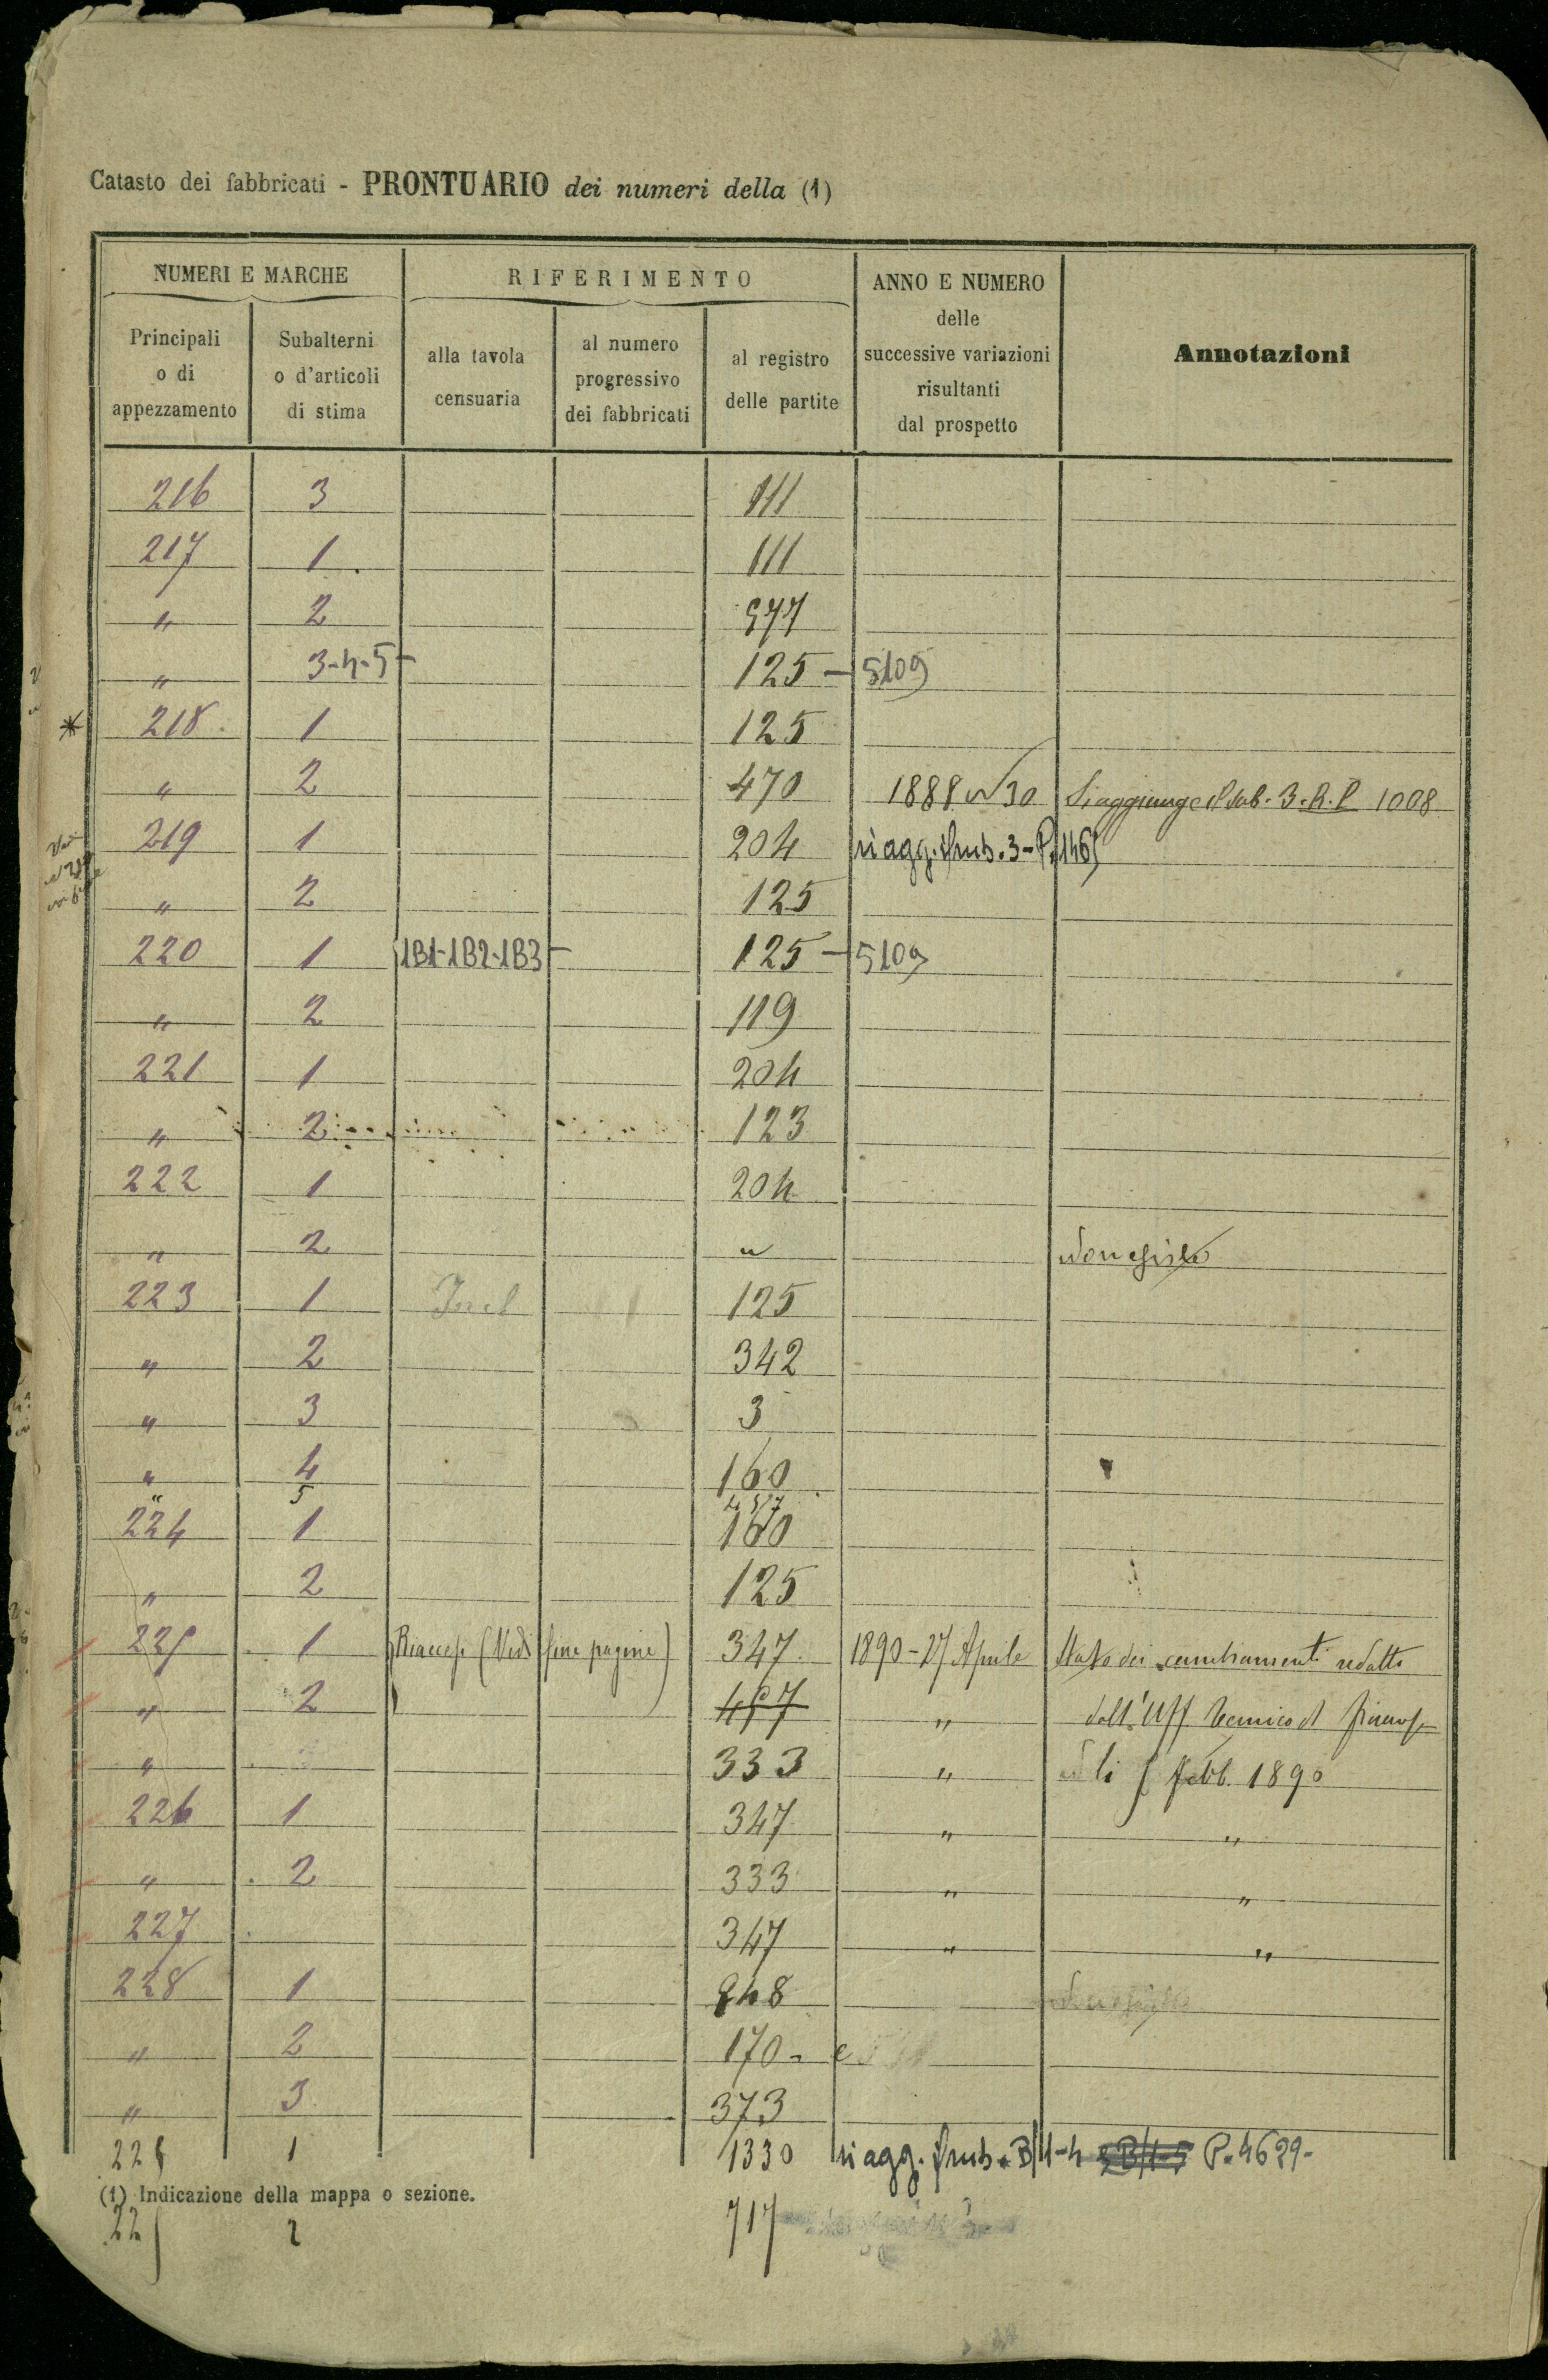 Catasto dei fabbricati - PRONTUARIO dei numeri della (1)
NUMERI E MARCHE
Principali o di appezzamento
Subalterni o d'articoli di stima
RIFERIMENTO
alla tavola censuaria
al numero progressivo dei fabbricati
al registro delle partite
ANNO E NUMERO delle successive variazioni risultanti dal prospetto
Annotazioni
216 3 111
217 1 111
" 2 977
" 3-4-5- 125 - 5109
218 1 125
" 2 470 1888 N 30 Si aggiunge il sub. 3. R. P. 1008
219 1 204 si agg. il sub. 3 - P.
" 2 125
220 1 1B1-1B2-1B3 - 125 - 5109
" 2 119
221 1 204
" 2 123
222 1 204
" 2 " Non esiste
223 1 125
" 2 342
" 3 3
" 4 160
" 5
224 1 160
" 2 125
225 1 (Vedi fine pagine) 347 1890 - 27 Aprile Stato dei cambiamenti redatto
" 2 457 " dall'Uff Tecnico di
" 333 " li 5 Febb. 1890
226 1 347 " "
" 2 333 " "
227 347 " "
228 1 848
" 2 170 - e
" 3 373
225 1 1330 si agg. il sub. B/1-4 P. 4629-
(1) Indicazione della mappa o sezione.
225 2 717